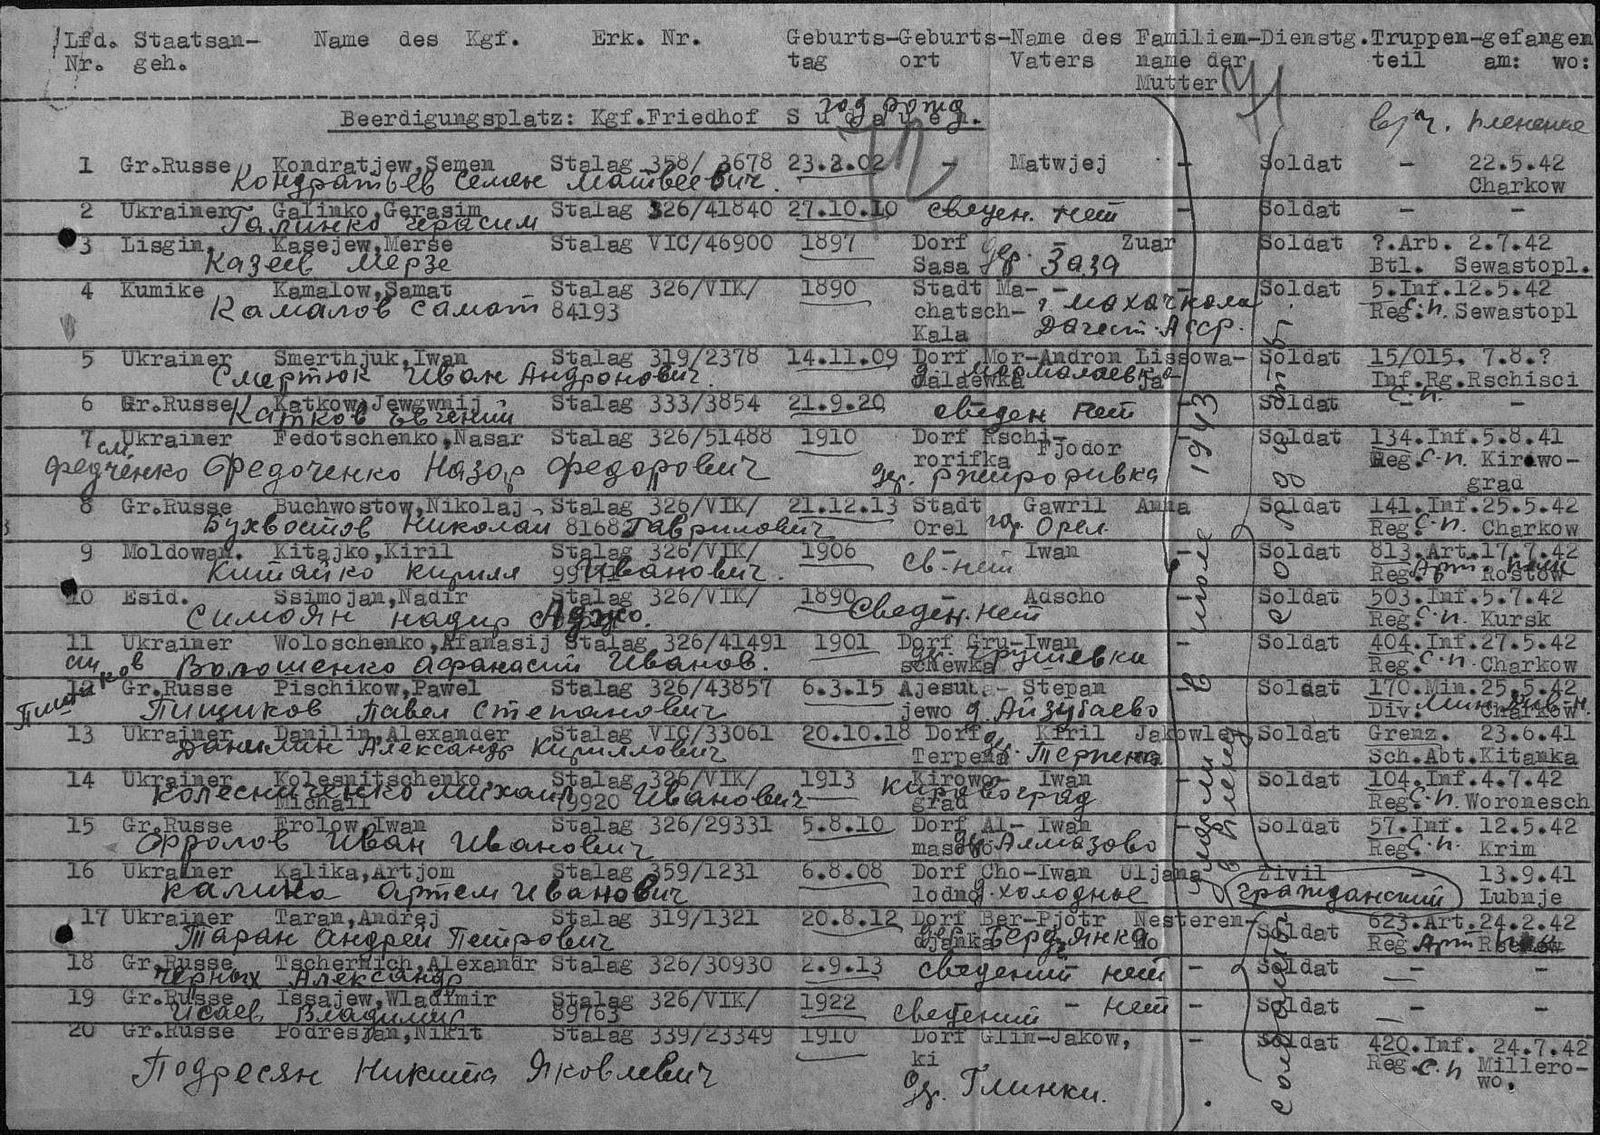 Lfd. Staatsan- Name des Kgf. Erk. Nr. Geburts- Geburts- Name des Familien- Dienstg. Truppen- gefangen
Nr. geh. tag ort Vaters name der teil am: wo:
Mutter
Beerdigungsplatz: Kgf.Friedhof Sudauen.
год рожд
1 Gr.Russe Kondratjew,Semen Stalag 358/ 3678 23.2.02 - Matwjej - Soldat - 22.5.42
Кондратьев Семен Матвеевич. Charkow
2 Ukrainer Galinko,Gerasim Stalag 326/41840 27.10.10 сведен. нет - Soldat - -
Галинко Герасим
3 Lisgin. Kasejew,Merse Stalag VIC/46900 1897 Dorf - Zuar Soldat ?.Arb. 2.7.42
Казеев Мерзе Sasa дер. Заза Btl. Sewastopl.
4 Kumike Kamalow,Samat Stalag 326/VIK/ 1890 Stadt Ma- - - Soldat 5.Inf.12.5.42
Камалов Самат 84193 chatsch- г. Махачкала Reg. с.п. Sewastopl
Kala Дагест. Асср.
5 Ukrainer Smerthjuk,Iwan Stalag 319/2378 14.11.09 Dorf Mor- Andron Lissowa- Soldat 15/015. 7.8.?
Смертюк Иван Андронович. malaewka д. Мормалаевка ja Inf.Rg.Rschisci
6 Gr.Russe Katkow,Jewgwnij Stalag 333/3854 21.9.20 сведен нет - Soldat - -
Катков Евгений с.п.
7 Ukrainer Fedotschenko,Nasar Stalag 326/51488 1910 Dorf Rschi- Fjodor - Soldat 134.Inf.5.8.41
см. rorifka Reg. с.п. Kirowo-
Федченко Федоченко Назар Федорович дер. Ржироривка grad
8 Gr.Russe Buchwostow,Nikolaj Stalag 326/VIK/ 21.12.13 Stadt Gawril Anna Soldat 141.Inf.25.5.42
Бухвостов Николай 8168 Гаврилович Orel гор. Орел Reg. с.п. Charkow
9 Moldowan. Kitajko,Kiril Stalag 326/VIK/ 1906 - Iwan - Soldat 813.Art.17.7.42
Китайко Кирилл Иванович. св-нет Reg. Арт. полк Rostow
10 Esid. Ssimojan,Nadir Stalag 326/VIK/ 1890 - Adscho - Soldat 503.Inf.5.7.42
Симоян надир Аджо. Сведен. нет Reg. с.п. Kursk
11 Ukrainer Woloschenko,Afanasij Stalag 326/41491 1901 Dorf Gru- Iwan - Soldat 404.Inf.27.5.42
Волошенко Афанасий Иванов. schewka де. Грушевка Reg. с.п. Charkow
12 Gr.Russe Pischikow,Pawel Stalag 326/43857 6.3.15 Ajesuba- Stepan - Soldat 170.Min.25.5.42
Пищиков Павел Степанович jewo д. Айзубаево Div. Charkow
13 Ukrainer Danilin,Alexander Stalag VIC/33061 20.10.18 Dorf Kiril Jakowlew Soldat Grenz. 23.6.41
Данилин Александр Кириллович Terpena де. Терпена Sch.Abt.Kitanka
14 Ukrainer Kolesnitschenko, Stalag 326/VIK/ 1913 Kirowo- Iwan - Soldat 104.Inf.4.7.42
Колесниченко Михаил Иванович Кировоград
Michail 79920 grad Reg. с.п. Woronesch
15 Gr.Russe Frolow,Iwan Stalag 326/29331 5.8.10 Dorf Al- Iwan - Soldat 57.Inf. 12.5.42
Фролов Иван Иванович masowo де. Алмазово Reg. с.п. Krim
16 Ukrainer Kalika,Artjom Stalag 359/1231 6.8.08 Dorf Cho- Iwan Uljana Zivil - 13.9.41
Калика Артем Иванович lodno д. Холодные гражданский Lubnje
17 Ukrainer Taran,Andrej Stalag 319/1321 20.8.12 Dorf Ber- Pjotr Nesteren- Soldat 623.Art.24.2.42
Таран Андрей Петрович djanka дер. Бердянка ko Reg. Арт
18 Gr.Russe Tschernich,Alexandr Stalag 326/30930 2.9.13 сведений нет - Soldat - -
Черных Александр
19 Gr.Russe Issajew,Wladimir Stalag 326/VIK/ 1922 сведений - нет - Soldat - -
Исаев Владимир 89763
20 Gr.Russe Podresjan,Nikit Stalag 339/23349 1910 Dorf Glin- Jakow, - Soldat 420.Inf. 24.7.42
ki Reg. с.п Millero-
Подресян Никита Яковлевич дер. Глинки. wo.
в июле 1943
солдат